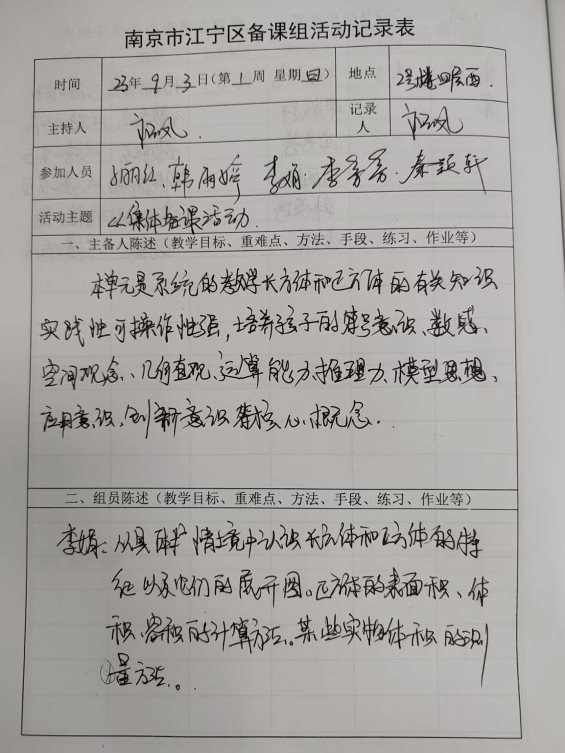 南京市江宁区备课组活动记录表
时间 23年9月3日(第1周 星期日) 地点 2号楼四层西.
主持人 记录人
参加人员 韩雨婷 李娟.李芳芳.秦 轩
活动主题 集体备课活动.
一、主备人陈述(教学目标、重难点、方法、手段、练习、作业等)
本单元是系统的教学长方体和正方体的有关知识
实践性可操作性强,培养孩子的符号意识、数感、
空间观念、几何直观、运算能力、推理力、模型思想、
应用意识、创新意识等核心概念.
二、组员陈述(教学目标、重难点、方法、手段、练习、作业等)
李娟:从具体情境中认识长方体和正方体的特
征以及它们的展开图。正方体的表面积、体
积、容积的计算方法。某些实物体积的测
量方法。